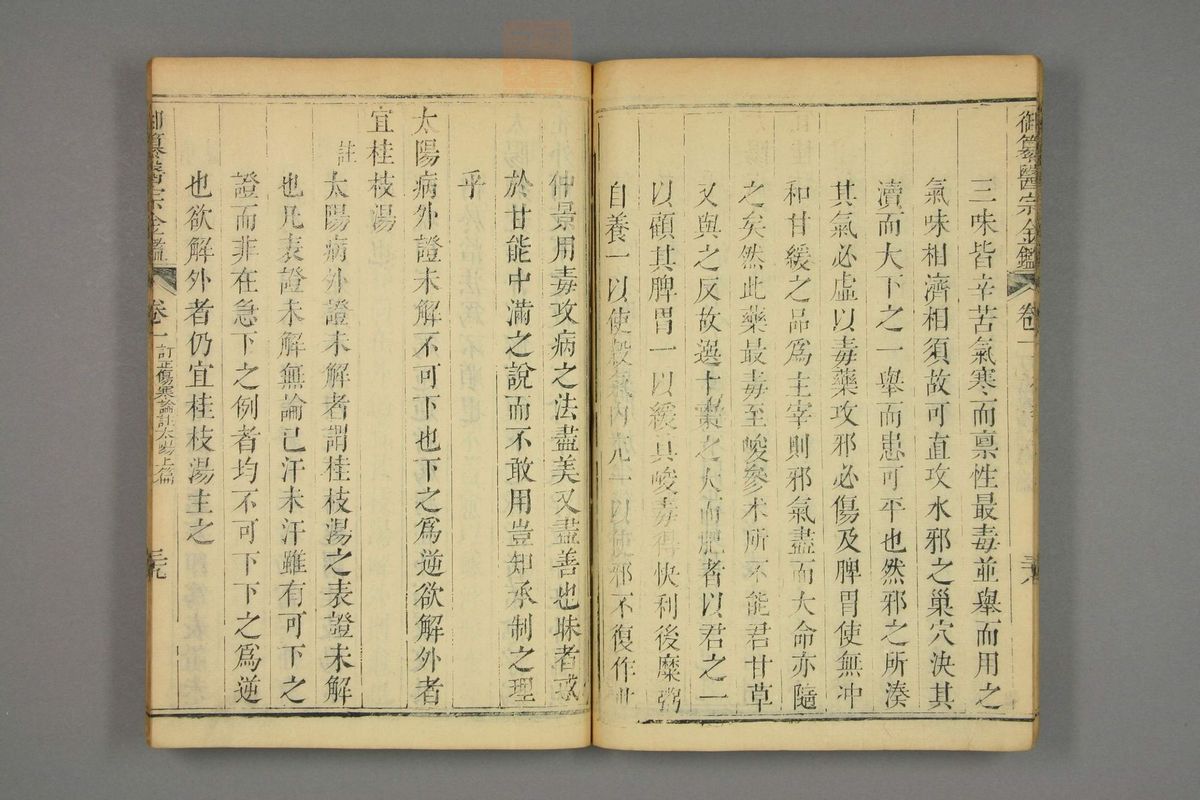 御纂醫宗金鑑 卷一 三十八
三味皆辛苦氣寒而禀性最毒並舉而用之
氣味相濟相須故可直攻水邪之巢穴決其
瀆而大下之一舉而患可平也然邪之所湊
其氣必虛以毒藥攻邪必傷及脾胃使無冲
和甘緩之品爲主宰則邪氣盡而大命亦隨
之矣然此藥最毒至峻參术所不能君甘草
又與之反故選十棗之大而肥者以君之一
以顧其脾胃一以緩其峻毒得快利後糜粥
自養一以使穀氣內充一以使邪不復作此
仲景用毒攻病之法盡美又盡善也昧者惑
於甘能中滿之說而不敢用豈知承制之理
乎
太陽病外證未解不可下也下之爲逆欲解外者
宜桂枝湯
註 太陽病外證未解者謂桂枝湯之表證未解
也凡表證未解無論已汗未汗雖有可下之
證而非在急下之例者均不可下下之爲逆
也欲解外者仍宜桂枝湯主之
御纂醫宗金鑑 卷一 訂正傷寒論註太陽上篇 三十九